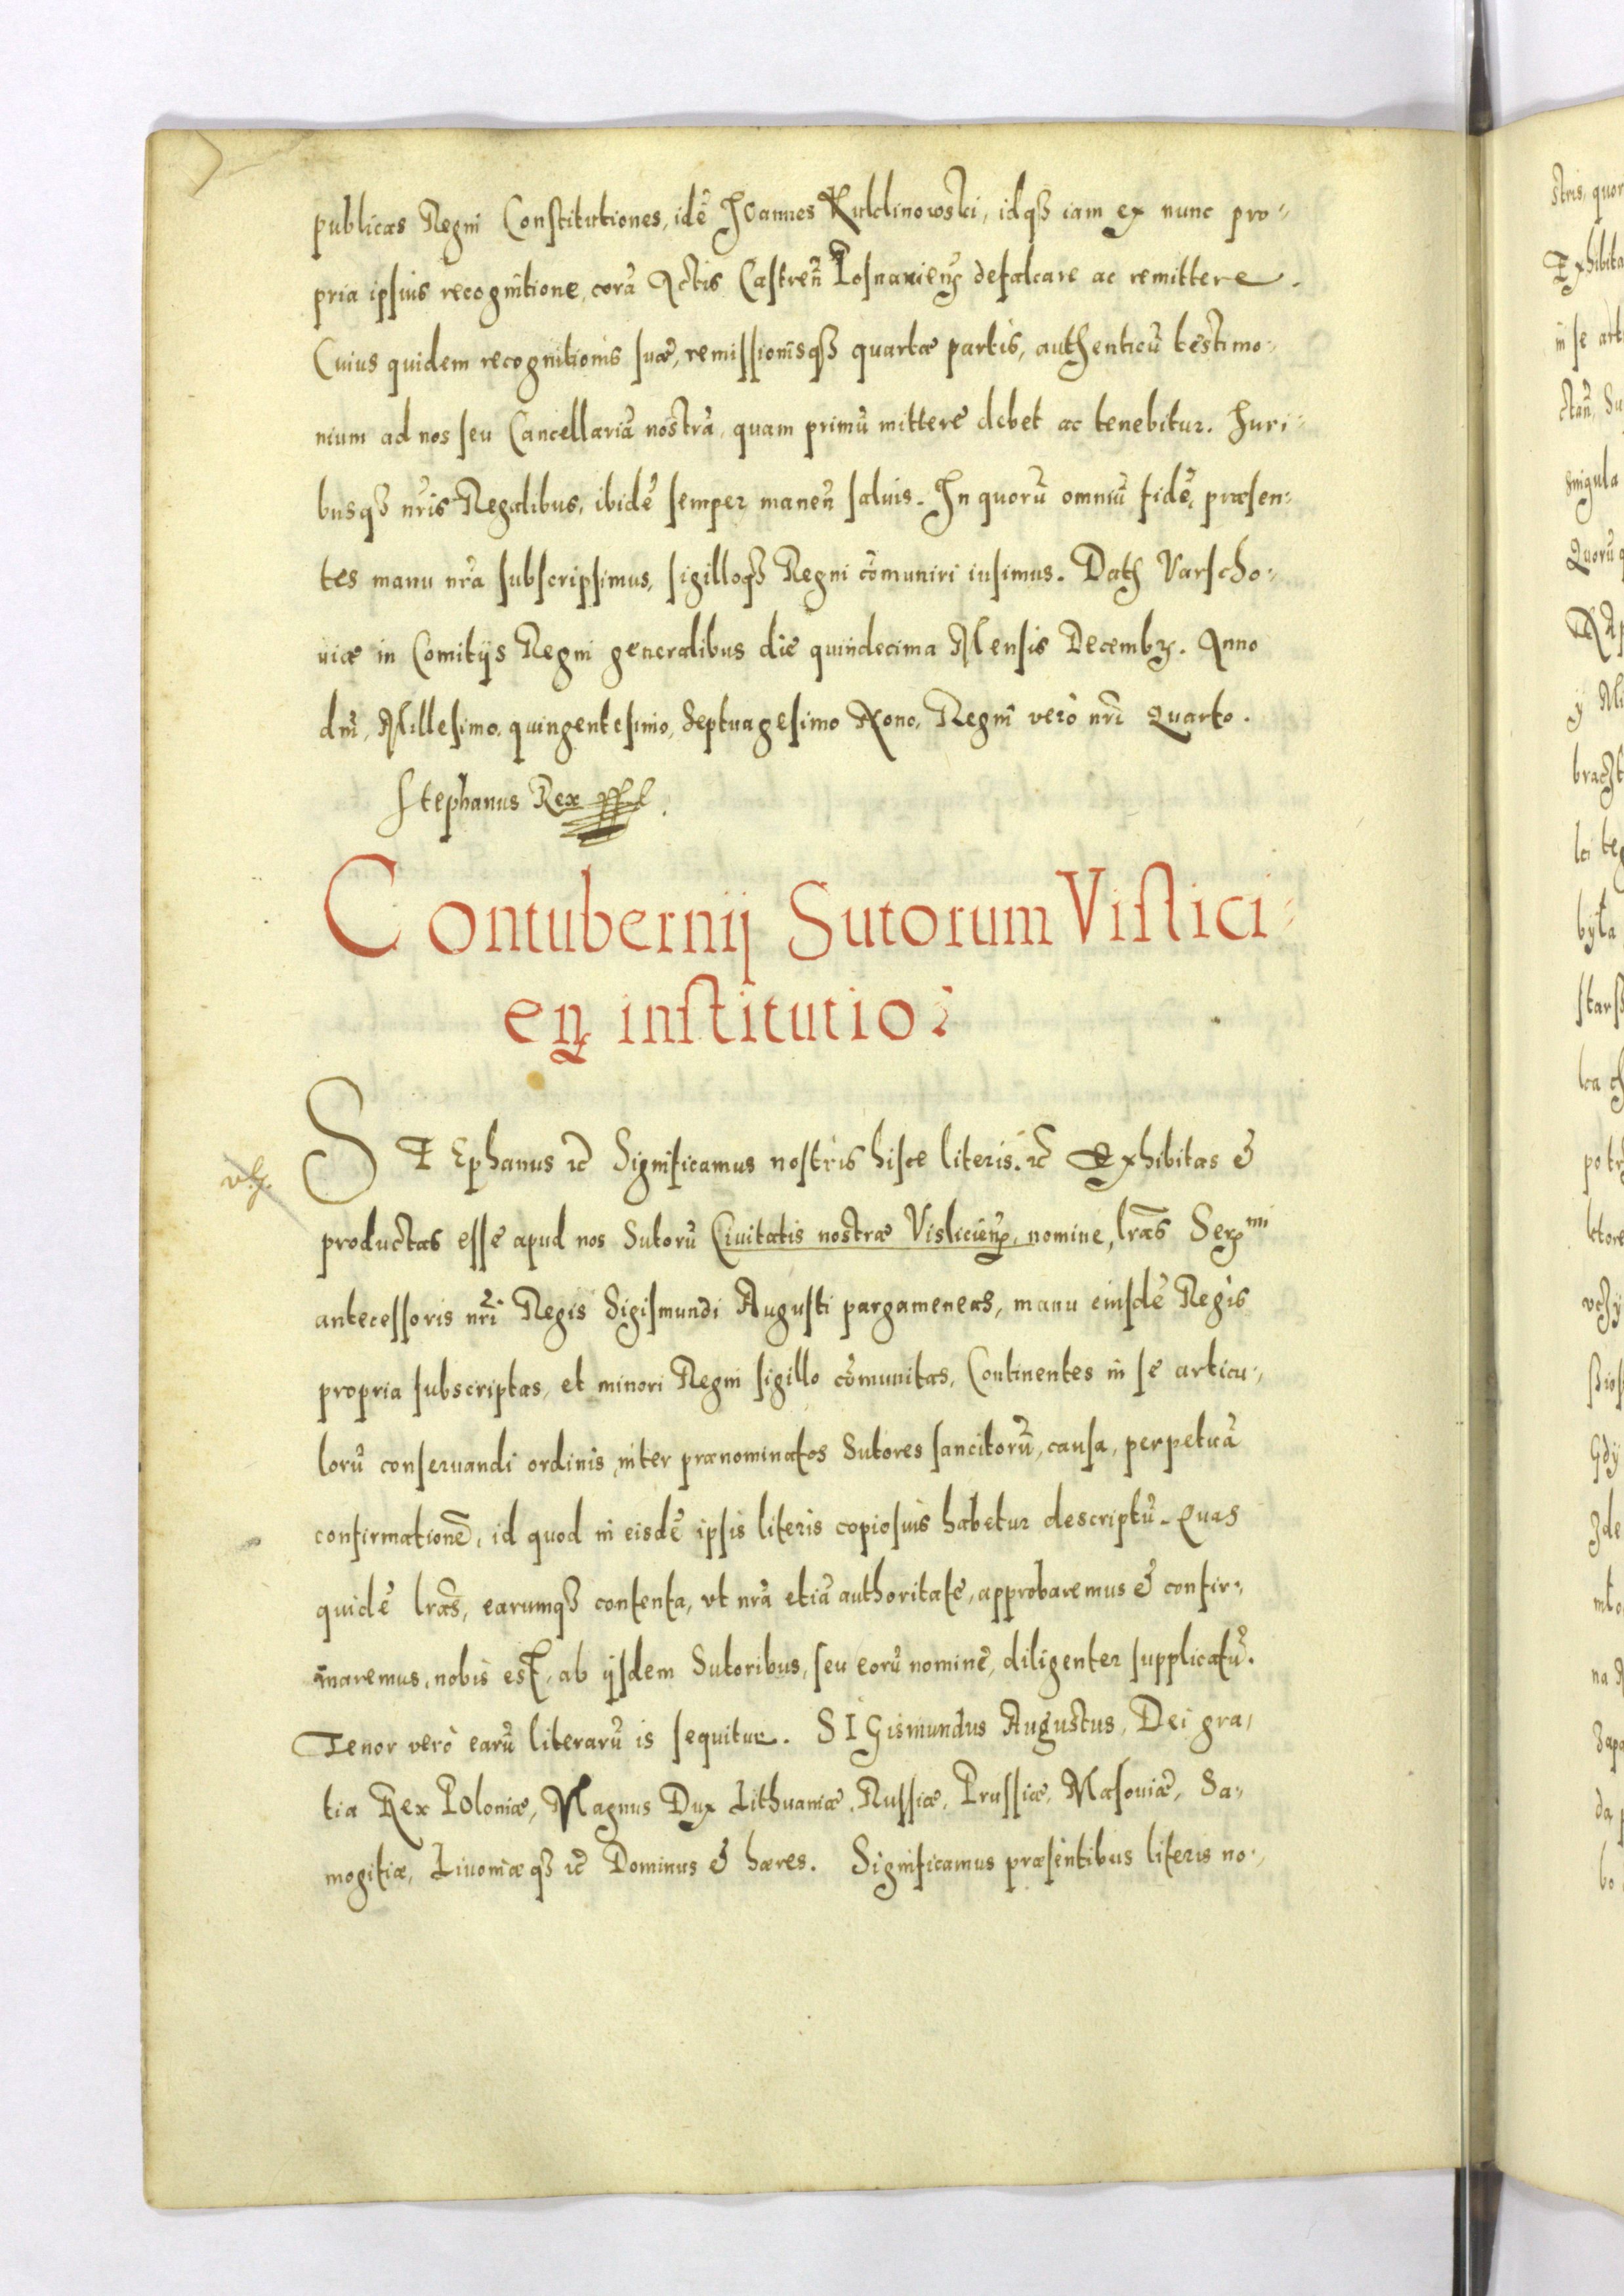 publicas Regni Constitutiones, idẽ Joannes Kulclinowski, idqꝫ iam ex nunc pro-
pria ipsius recognitione, corã Actis Castreñ Posnanienꝭ defalcare ac remittere.
Cuius quidem recognitionis suæ, remissionisqꝫ quartæ partis, authenticũ testimo-
nium ad nos seu Cancellariã nostrã, quam primũ mittere debet ac tenebitur. Juri-
busqꝫ nr̃is Regalibus, ibidẽ semper maneñ saluis. In quorũ omniũ fidẽ, præsen-
tes manu nr̃a subscripsimus, sigilloqꝫ Regni cõmuniri iusimus. Datꝭ Varscho-
uiæ in Comitijs Regni generalibus die quindecima Mensis Decembꝛ. Anno
dñi, Millesimo, quingentesimo, Septuagesimo Nono, Regni verò nr̃i Quarto.
Stephanus Rex
Contubernij Sutorum Vislici-
enꝭ institutio.
STEphanus ꝛc̃ Significamus nostris hisce literis. ꝛc̃ Exhibitas &
productas esse apud nos Sutorũ Ciuitatis nostræ Vislicienꝭ, nomine, lr̃as Serꝭmi
antecessoris nr̃i Regis Sigismundi Augusti pargameneas, manu eiusdẽ Regis
propria subscriptas, et minori Regni sigillo cõmunitas, Continentes in se articu-
lorũ conseruandi ordinis, inter prænominatos Sutores sancitorũ, causa, perpetuã
confirmationẽ, id quod in eisdẽ ipsis literis copiosius habetur descriptũ. Quas
quidẽ lr̃as, earumqꝫ contenta, vt nr̃a etiã authoritate, approbaremus & confir-
maremus, nobis est, ab ijsdem Sutoribus, seu eorũ nomine, diligenter supplicatũ.
Tenor verò earũ literarũ is sequitur. SIGismundus Augustus, Dei gra-
tia Rex Poloniæ, Magnus Dux Lithuaniæ, Russiæ, Prussiæ, Masouiæ, Sa-
mogitiæ, Liuoniæqꝫ ꝛc̃ Dominus & hæres. Significamus præsentibus literis no-